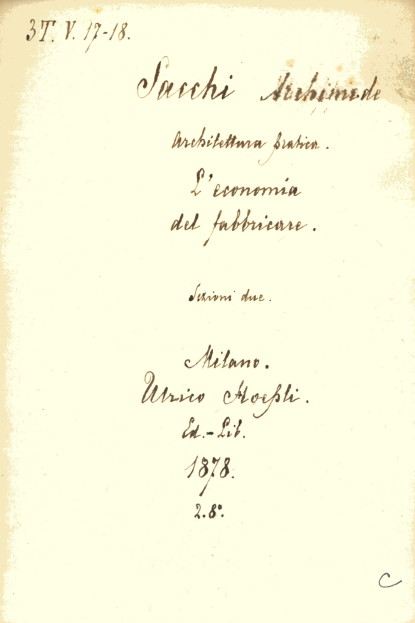 3T. V. 17-18.
Sacchi Archimede
Architettura pratica.
L'economia
del fabbricare.
Sezioni due.
Milano.
Ulrico Hoepli.
Ed.-Lib.
1878.
2.8°.
C